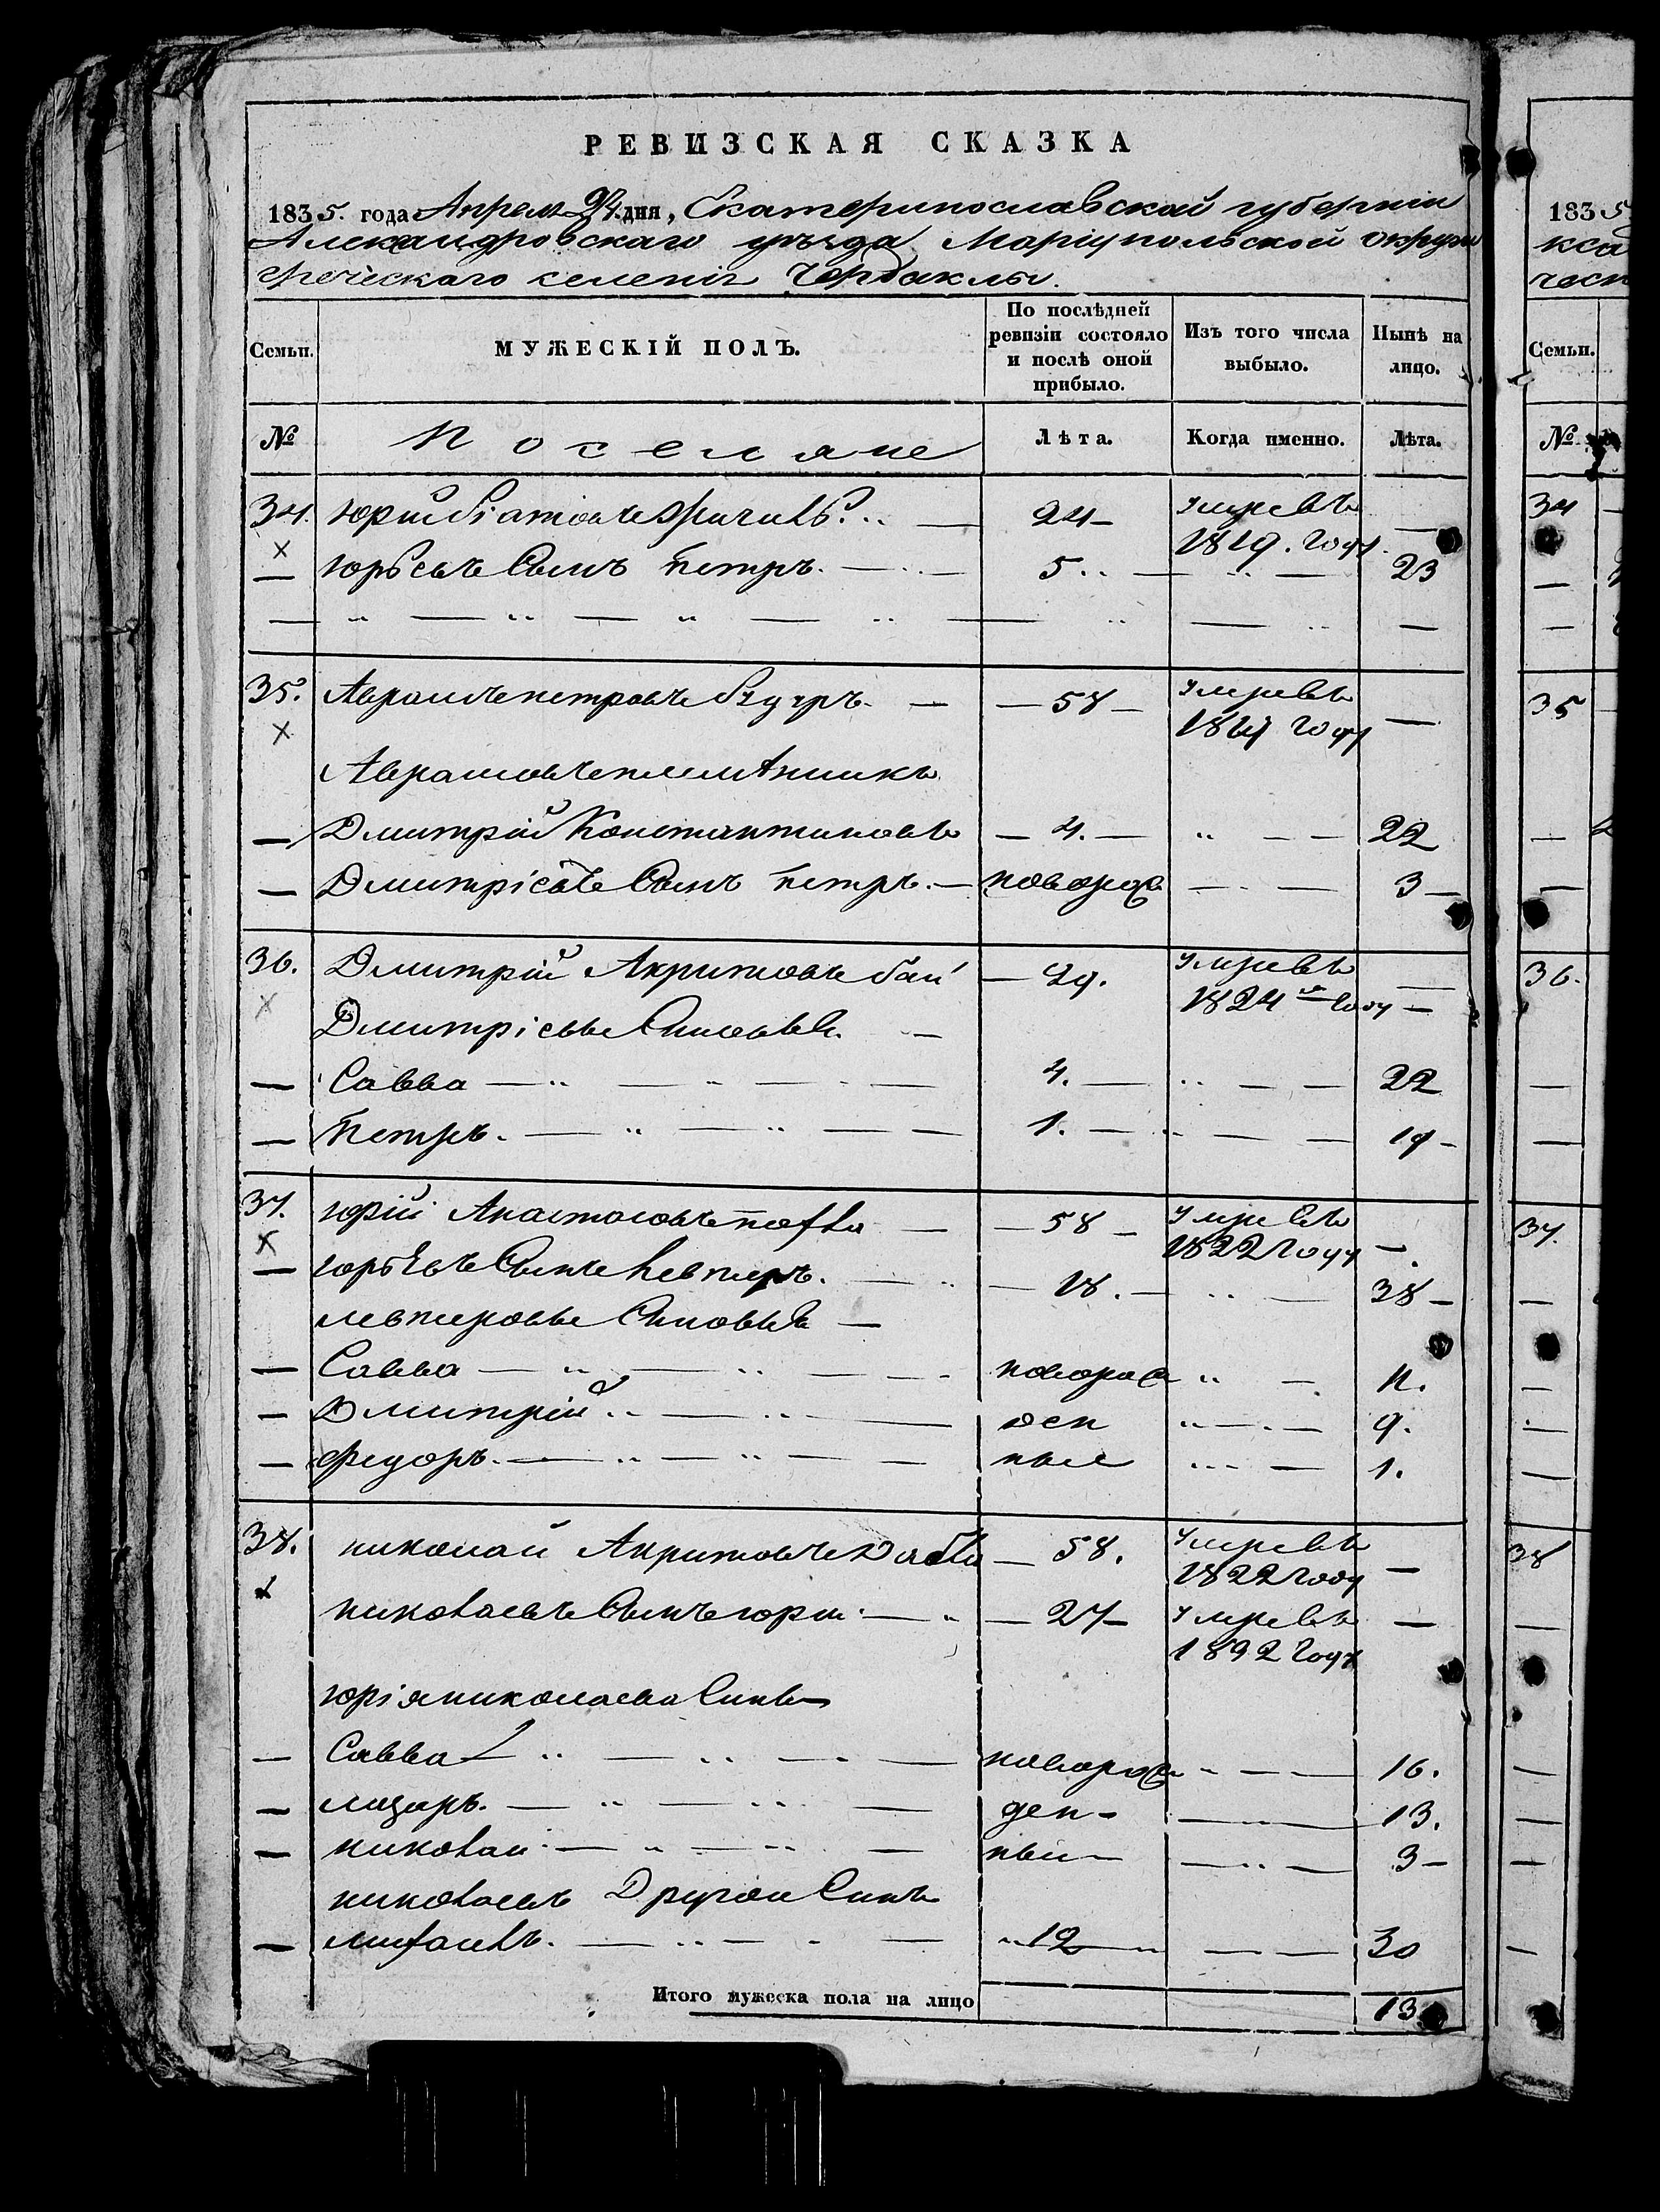 РЕВИЗСКАЯ СКАЗКА
1835. года Апреля 24 дня, Екатеринославской губернiи
Александровскаго уѣзда Марiупольской округи
Греческаго селенiя Чердаклы.
Семьи. МУЖЕСКІЙ ПОЛЪ. По послѣдней ревизіи состояло и послѣ оной прибыло. Изъ того числа выбыло. Нынѣ на лицо.
№ Поселяне Лѣта. Когда именно. Лѣта.
34. Юрий 24 умревъ
1819. году. —
— Юрьевъ Сынъ Петръ. 5 — 23
35. Аврамъ Петровъ — 58 — умревъ
году —
Аврамовъ племянникъ
— Дмитрій Константиновъ — 4. — 22
— Дмитріевъ Сынъ Петръ. — новорож — 3 —
36. Дмитрій Акритовъ бай — 29. умревъ
1824 году —
Дмитріевы Синовья —
— Савва — 4. — 22
— Петръ. — 1. — 19 —
37. Юрій Анастасовъ — 58 — умревъ
1822 году —.
— Юрьевъ Сынъ Левтеръ. — 18. — 38 —
Левтеровы Синовья —
— Савва — новорож —
— Дмитрій — ден — 9.
— Федоръ. — ные — 1.
38. Николай Акритовъ — 58. умревъ
1822 году —
Николаевъ Сынъ Юрий — 27 — умревъ
году —
Юрія Николаева Сины
— Савва — новорож — 16.
— Лазаръ. — ден — 13.
— Николай — ные — 3 —
Николаевъ Другой Синъ
— Михаилъ. — 12 — 30
Итого мужеска пола на лицо 13
183 5
34
35
36.
37.
38
Семьи.
№